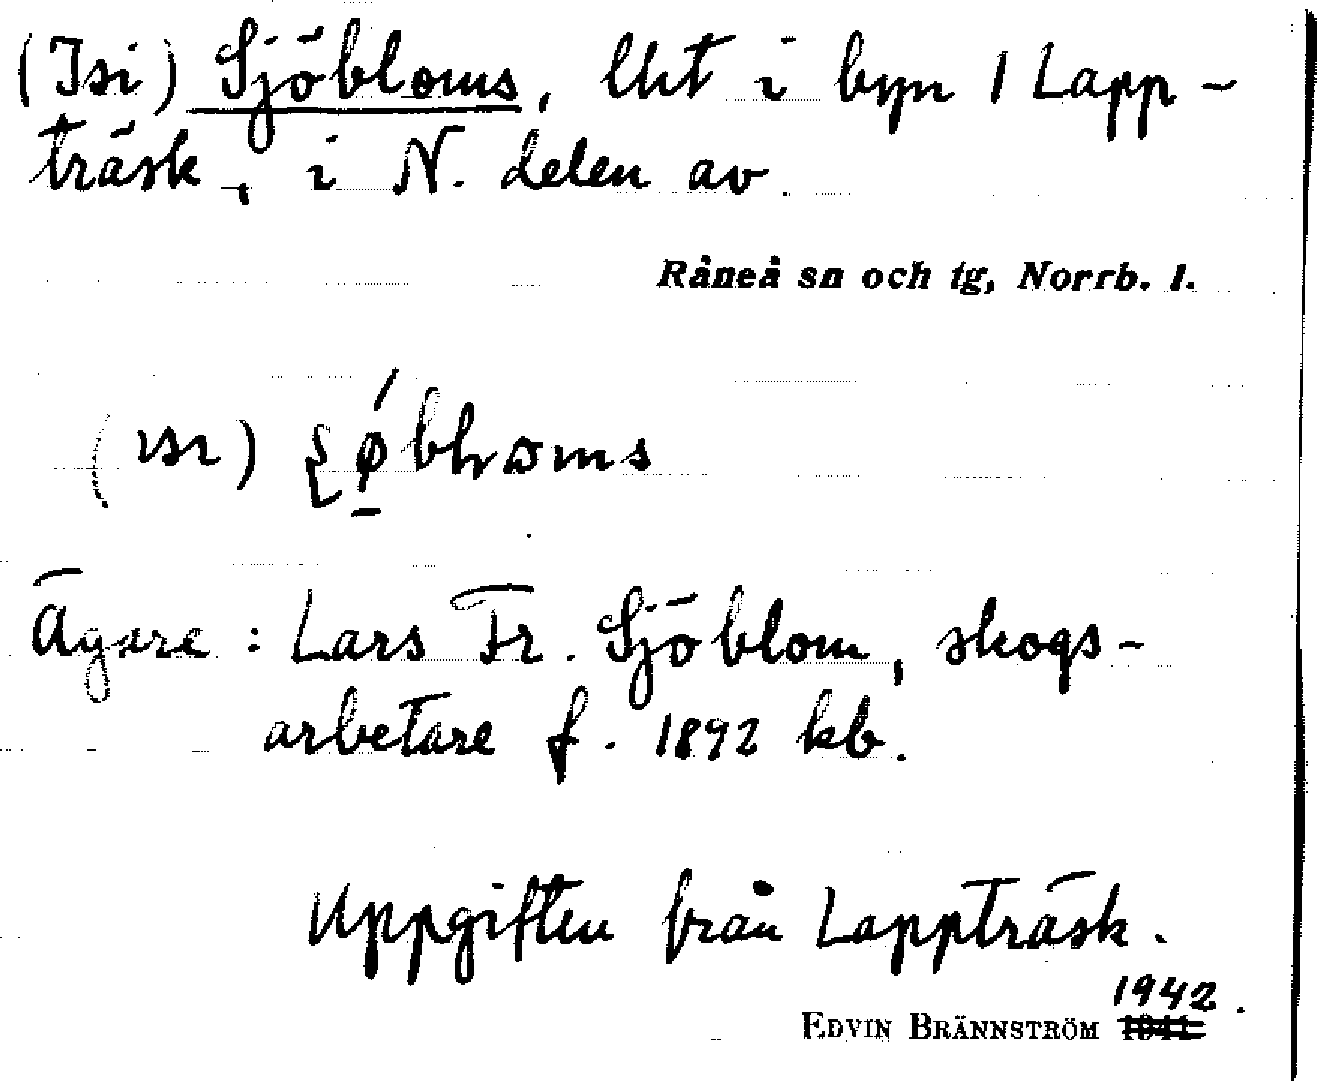 (Isi) Sjöbloms, lht i byn 1 Lapp-
träsk, i N. delen av
Råneå sn och tg, Norrb. l.
(ısı)
Ägare: Lars Fr. Sjöblom, skogs-
arbetare f. 1892 kb.
Uppgiften från Lappträsk.
1942.
EDVIN BRÄNNSTRÖM 1941